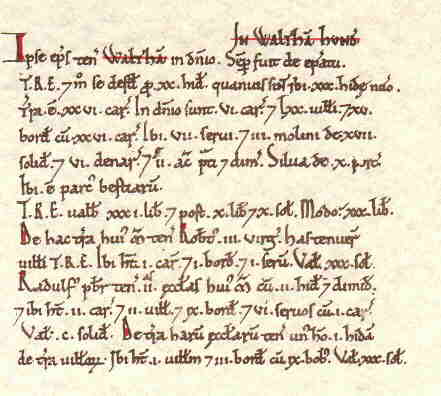 IN WALTHÃ HUND
Ipse ep̃s ten̾ WALTHÃ in dñio. Sẽp fuit de ep̃atu.
T.R.E. ⁊ m̊ se defd̾ ꝓ .xx. hid̾. quamuis sint ibi .xxx. hidæ nũo.
Tr̃a .ẽ .xxvi. car̾. In dñio sunt .vi. car̾. ⁊ lxx. uilli ⁊ xv.
bord̾ cũ .xxvi. car̾. Ibi .vii. serui. ⁊ iii. molini de .xvii.
solid̾. ⁊ vi. denar̾. ⁊ ac̃ p̃ti ⁊ dim̾. Silua de .x. porc̾.
Ibi .ẽ parc̾ bestiarũ.
T.R.E. ualb̾ xxxi. lib̾. ⁊ post .x. lib̾ ⁊ x. sol̾. Modo .xxx. lib̾.
De hac tr̃a hui᷒ m̃ ten̾ Robt̾ .iii. virg̾. Has tenuer̾
uilli T.R.E. Ibi ht̾ .i. car̾. ⁊ i. bord̾. ⁊ i. seruũ. Val̾ .xxx. sol̾.
Radulf᷒ pbr̾ ten̾ .ii. æccl̃as hui᷒ m̃ cũ .ii. hid̾ ⁊ dimid̾.
⁊ ibi ht̾ .ii. car̾. ⁊ ii. uill̾. ⁊ ix. bord̾. ⁊ vi. seruos cũ .i. car̾.
Val̾ .c. solid̾. De tr̃a harũ æccl̃arũ ten̾ un᷒ hõ .i. hidã
de tr̃a uilloꝝ. Ibi ht̾ .i. uillm̾ ⁊ iii. bord̾ cũ .ix. bob᷒. Val̾ .xxx. sol̾.